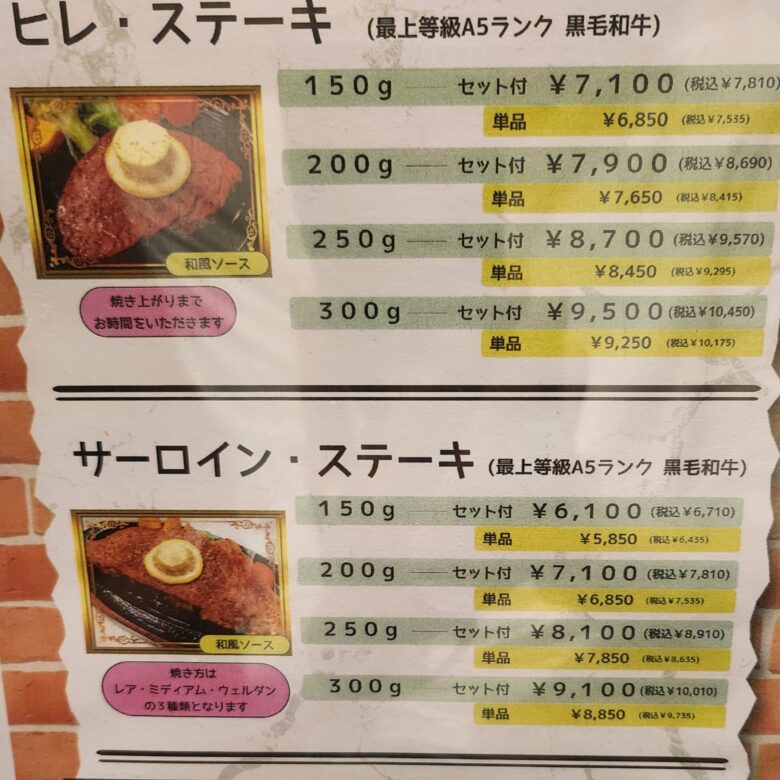 ヒレ・ステーキ (最上等級A5ランク 黒毛和牛)
150g セット付 ¥7,100 (税込¥7,810)
単品 ¥6,850 (税込¥7,535)
200g セット付 ¥7,900 (税込¥8,690)
単品 ¥7,650 (税込¥8,415)
250g セット付 ¥8,700 (税込¥9,570)
単品 ¥8,450 (税込¥9,295)
300g セット付 ¥9,500 (税込¥10,450)
単品 ¥9,250 (税込¥10,175)
和風ソース
焼き上がりまで
お時間をいただきます
サーロイン・ステーキ (最上等級A5ランク 黒毛和牛)
150g セット付 ¥6,100 (税込¥6,710)
単品 ¥5,850 (税込¥6,435)
200g セット付 ¥7,100 (税込¥7,810)
単品 ¥6,850 (税込¥7,535)
250g セット付 ¥8,100 (税込¥8,910)
単品 ¥7,850 (税込¥8,635)
300g セット付 ¥9,100 (税込¥10,010)
単品 ¥8,850 (税込¥9,735)
和風ソース
焼き方は
レア・ミディアム・ウェルダン
の3種類となります